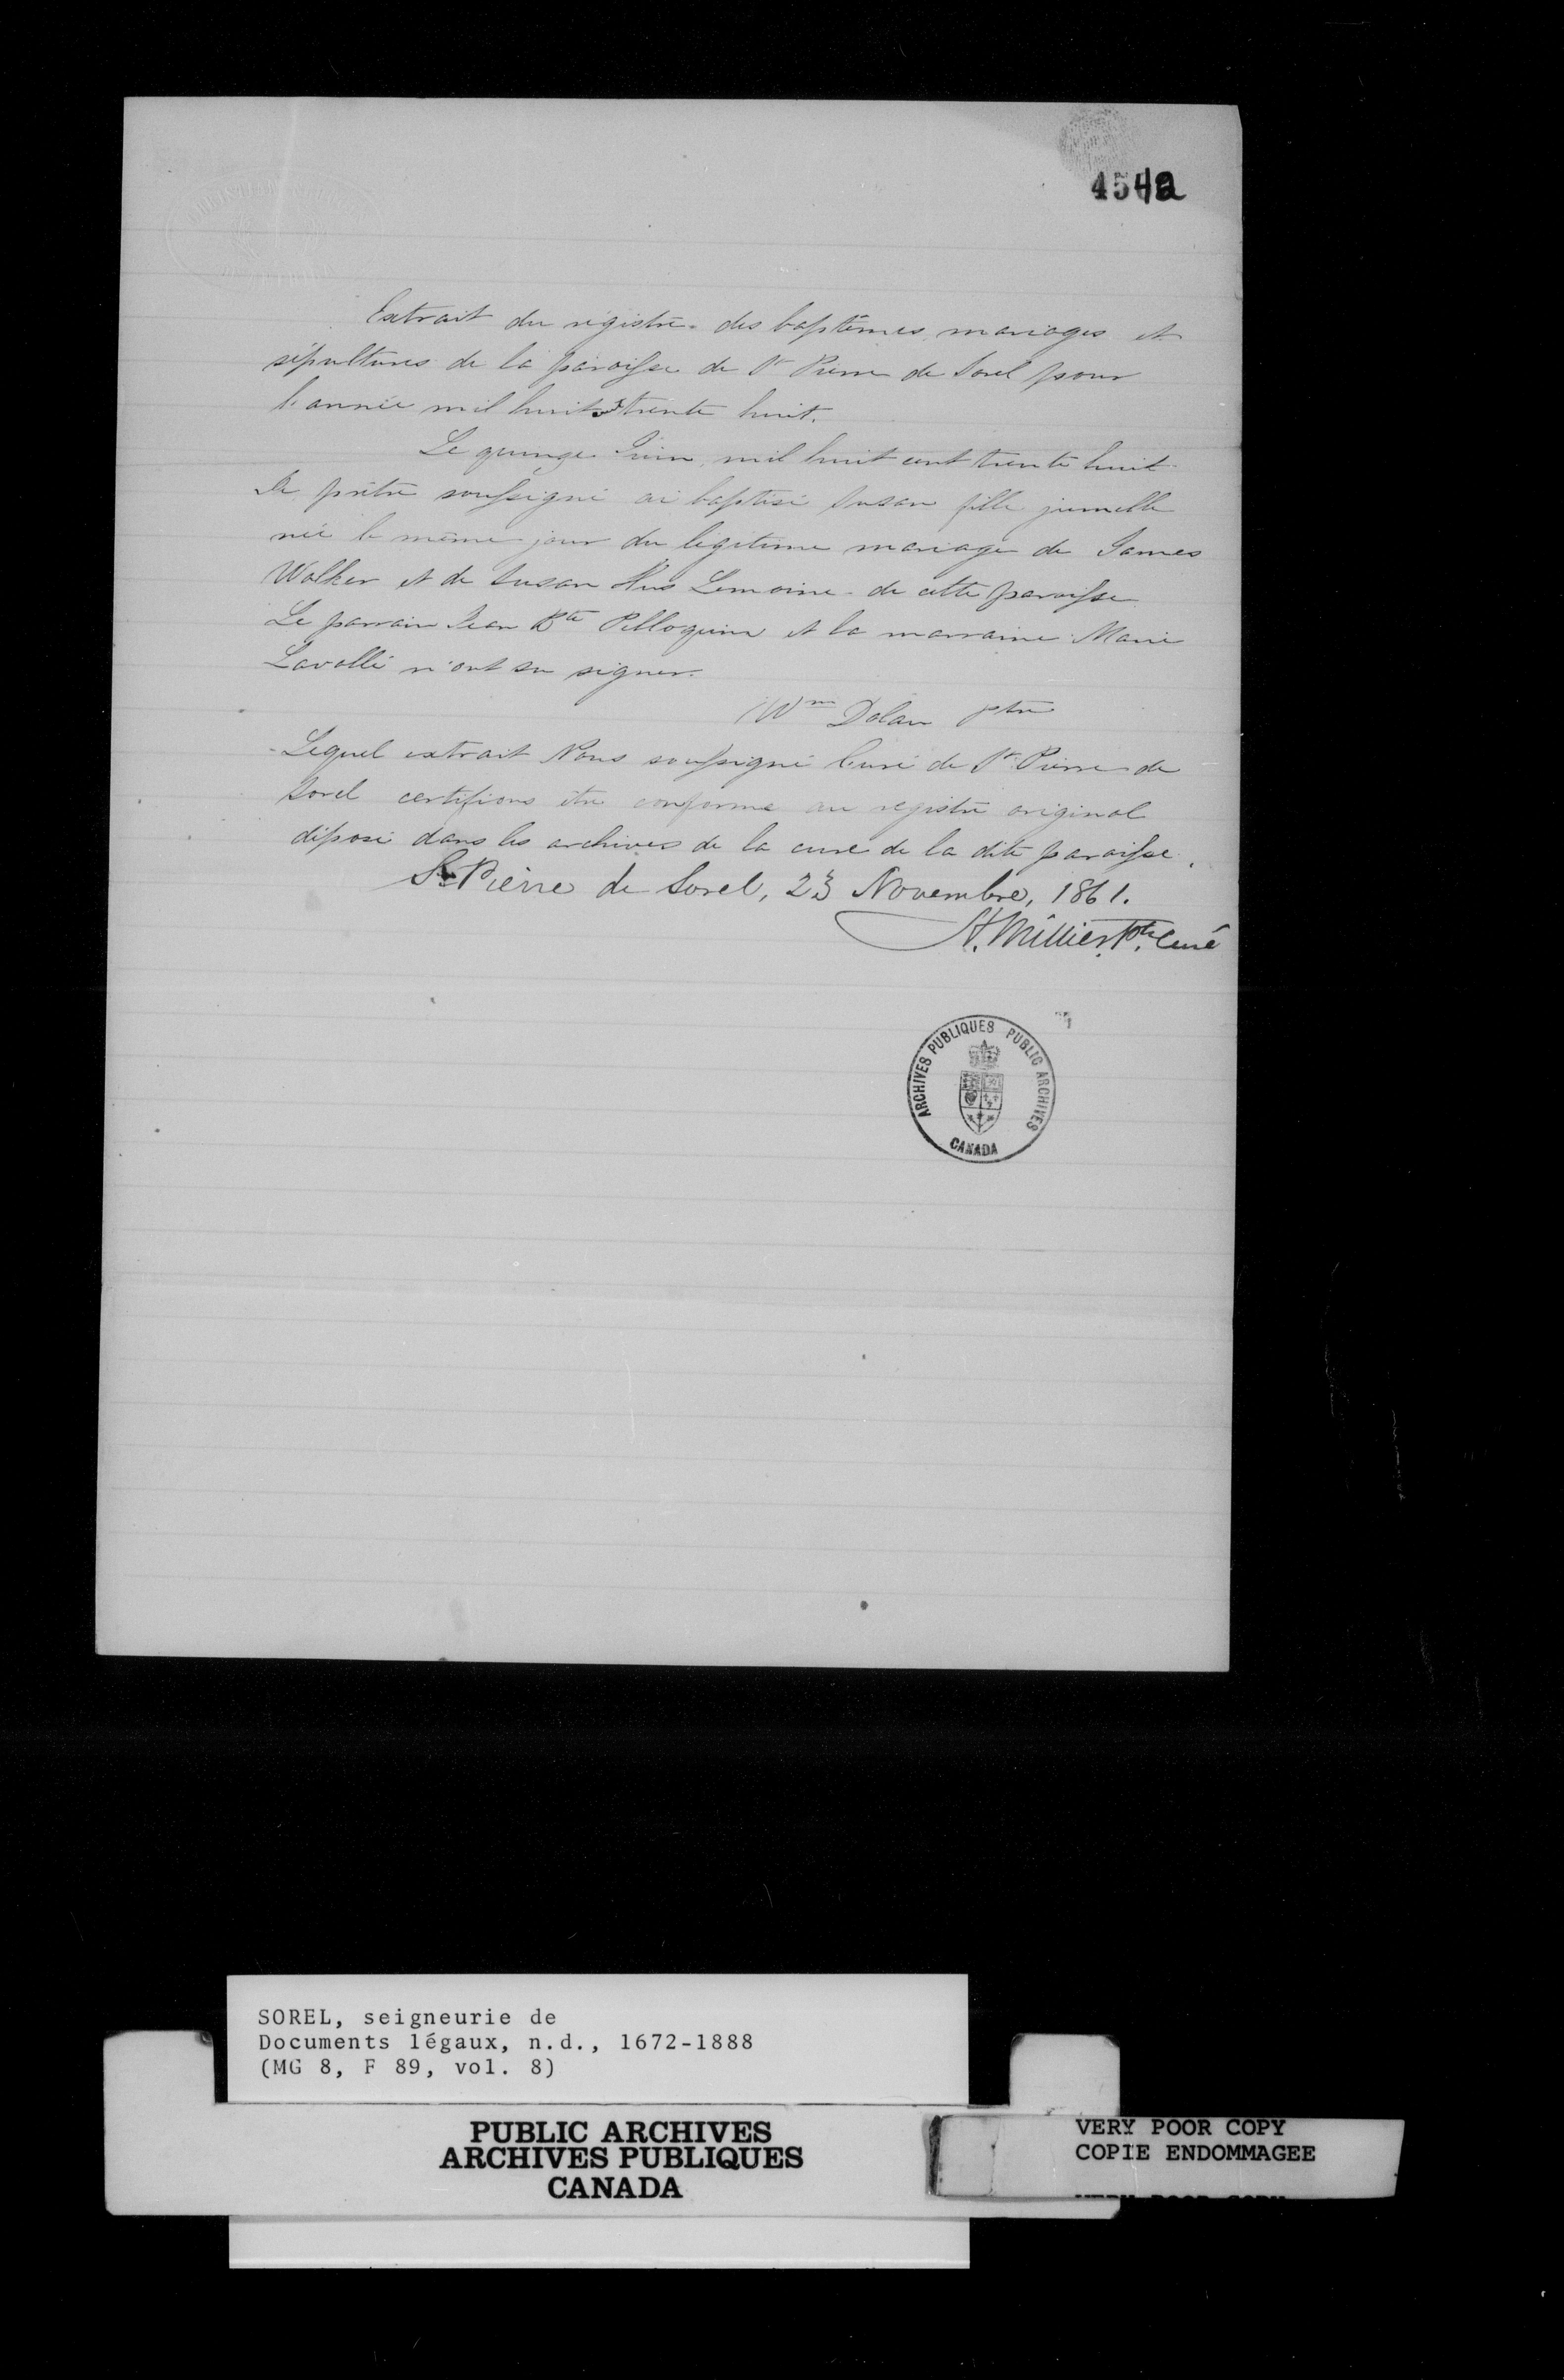 4542
Extrait du régistre des baptêmes mariages et
sépultures de la paroisse de St Pierre de Sorel pour
l'année mil huit trente huit.
Le quinze Juin, mil huit cent trente huit
Je prêtre soussigné ai baptisé Susan fille jumelle
née le même jour du légitime mariage de James
Walker et de Susan Hus Lemoine de cette paroisse
Le parrain Jean Bte Pelloquin et la marraine Marie
Lavallé n'ont su signer.
Wm Dolan ptre
Lequel extrait Nous soussigné Curé de St Pierre de
Sorel certifions être conforme au registre original
déposé dans les archives de la cure de la dite paroisse.
St Pierre de Sorel, 23 Novembre, 1861.
H. Millier, Ptre. Curé
ARCHIVES PUBLIQUES PUBLIC ARCHIVES
CANADA
SOREL, seigneurie de
Documents légaux, n.d., 1672-1888
(MG 8, F 89, vol. 8)
PUBLIC ARCHIVES
ARCHIVES PUBLIQUES
CANADA
VERY POOR COPY
COPIE ENDOMMAGEE
VERY POOR COPY